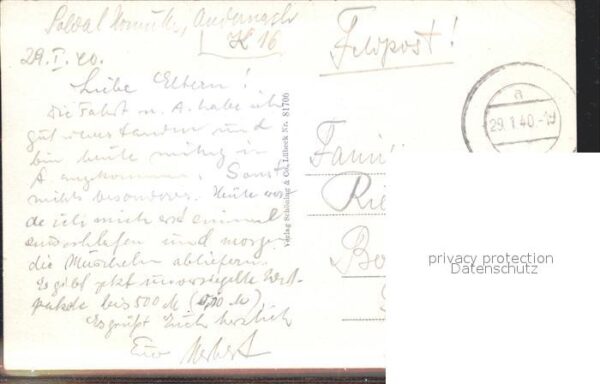 Soldat Andernach
K 16
29.I.40.
Liebe Eltern!
Die Fahrt n. A. habe ich
gut überstanden und
bin heute mittag in
A. angekommen. Sonst
nichts besonderes. Heute wer-
de ich mich erst einmal
ausschlafen und morgen
die Muscheln abliefern.
Es gibt jetzt unversiegelte Wert-
pakete bis 500 M ( M).
Es grüßt Euch herzlich
Eur Herbert
Verlag Schöning & Co., Lübeck Nr. 81706
Feldpost!
a
29.1.40.-19
Fami
Rie
Bo
privacy protection
Datenschutz